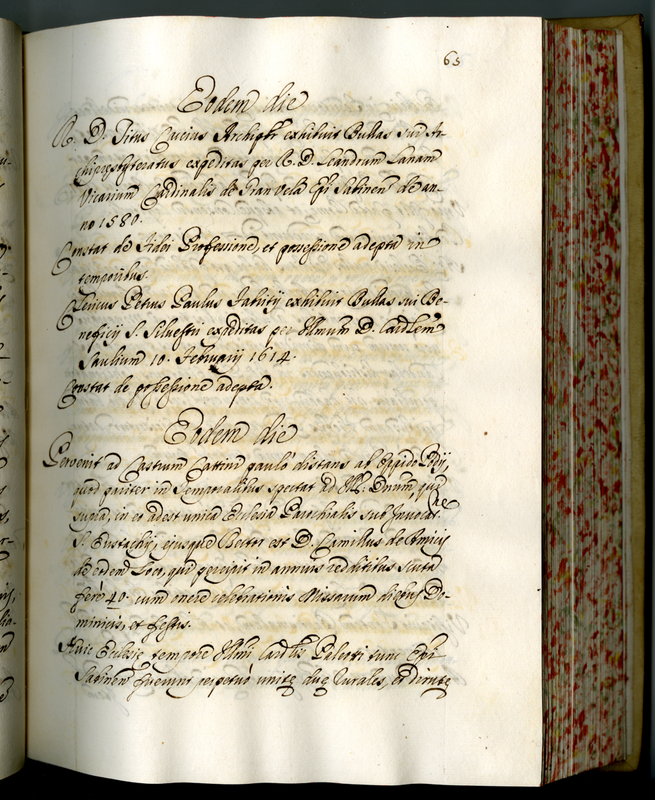 65
Eodem die
R. D. Titus Cucius Archipbr exhibuit Bullas sui Ar-
chipresbyteratus expeditas per R. D. Leandrum Lanam
Vicarium Cardinalis de Granvela Epi Sabinen de an-
no 1580.
Constat de Fidei Professione, et possessione adepta in
temporibus.
Clericus Petrus Paulus exhibuit Bullas sui Be-
neficij S. Silvestri expeditas per Illmum D. Cardlem
Saulium 10. Februarij 1614.
Constat de possessione adepta.
Eodem die
Pervenit ad Castrum Catini paulò distans ab Oppido
quod pariter in Temporalibus spectat ad Ill. Dnum, qui
supra, in eo adest unica Ecclesia Parochialis sub Invocat.ne
S. Eustachij, ejusque Rector est D. Camillus de Amicis
de eodem Loco, qui percipit in annuis redditibus scuta
ferè 40. cum onere celebrationis Missarum diebus Do-
minicis, et festis.
Huic Ecclesie tempore Illmi Cardlis Paleotti tunc Epi
Sabinen fuerunt perpetuò unite due Rurales, et dirute